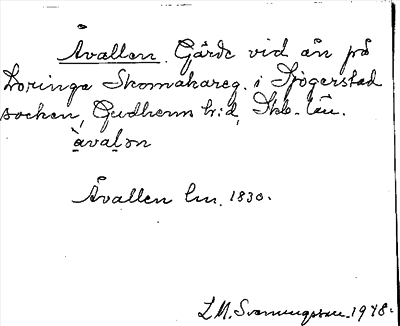 Åvallen. Gärde vid ån på
Loringa Skomakareg. i Sjögerstad
socken, Gudhems h:d, Skb. län.
àvalən
Åvallen lm. 1830.
L.M. Svanungsson. 1948.